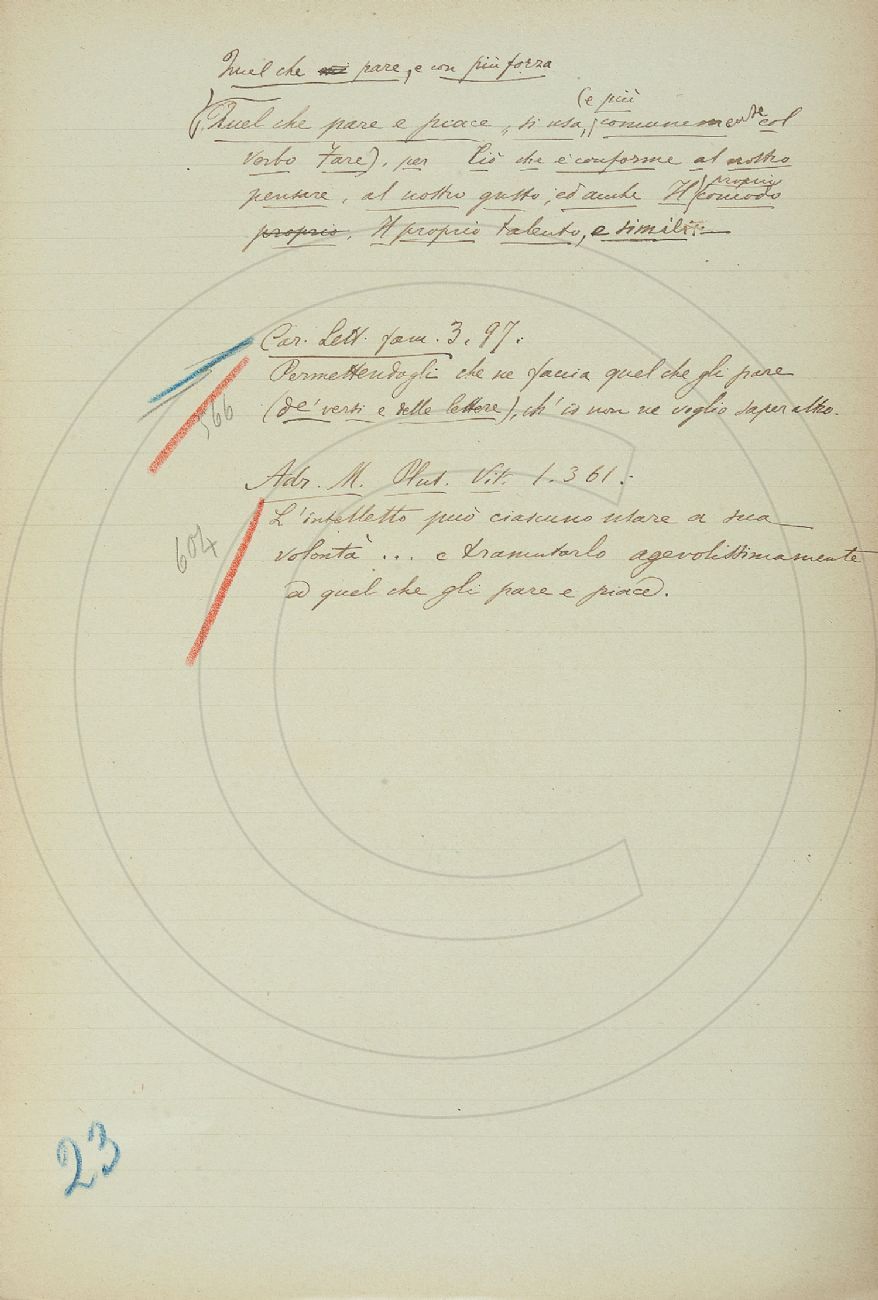 Quel che mi pare, e con più forza
(e più
Quel che pare e piace, si usa, comunemente col
verbo Fare), per Ciò che è conforme al nostro
proprio
pensare, al nostro gusto; ed anche Il comodo
proprio, Il proprio talento, e simili.—
Car. Lett. fam. 3. 97:
Permettendogli che ne faccia quel che gli pare
566
(de' versi e delle lettere), ch' io non ne voglio saper altro.
Adr. M. Plut. Vit. 1. 361:
L'intelletto può ciascuno usare a sua
604
volontà ... e tramutarlo agevolissimamente
a quel che gli pare e piace.
23